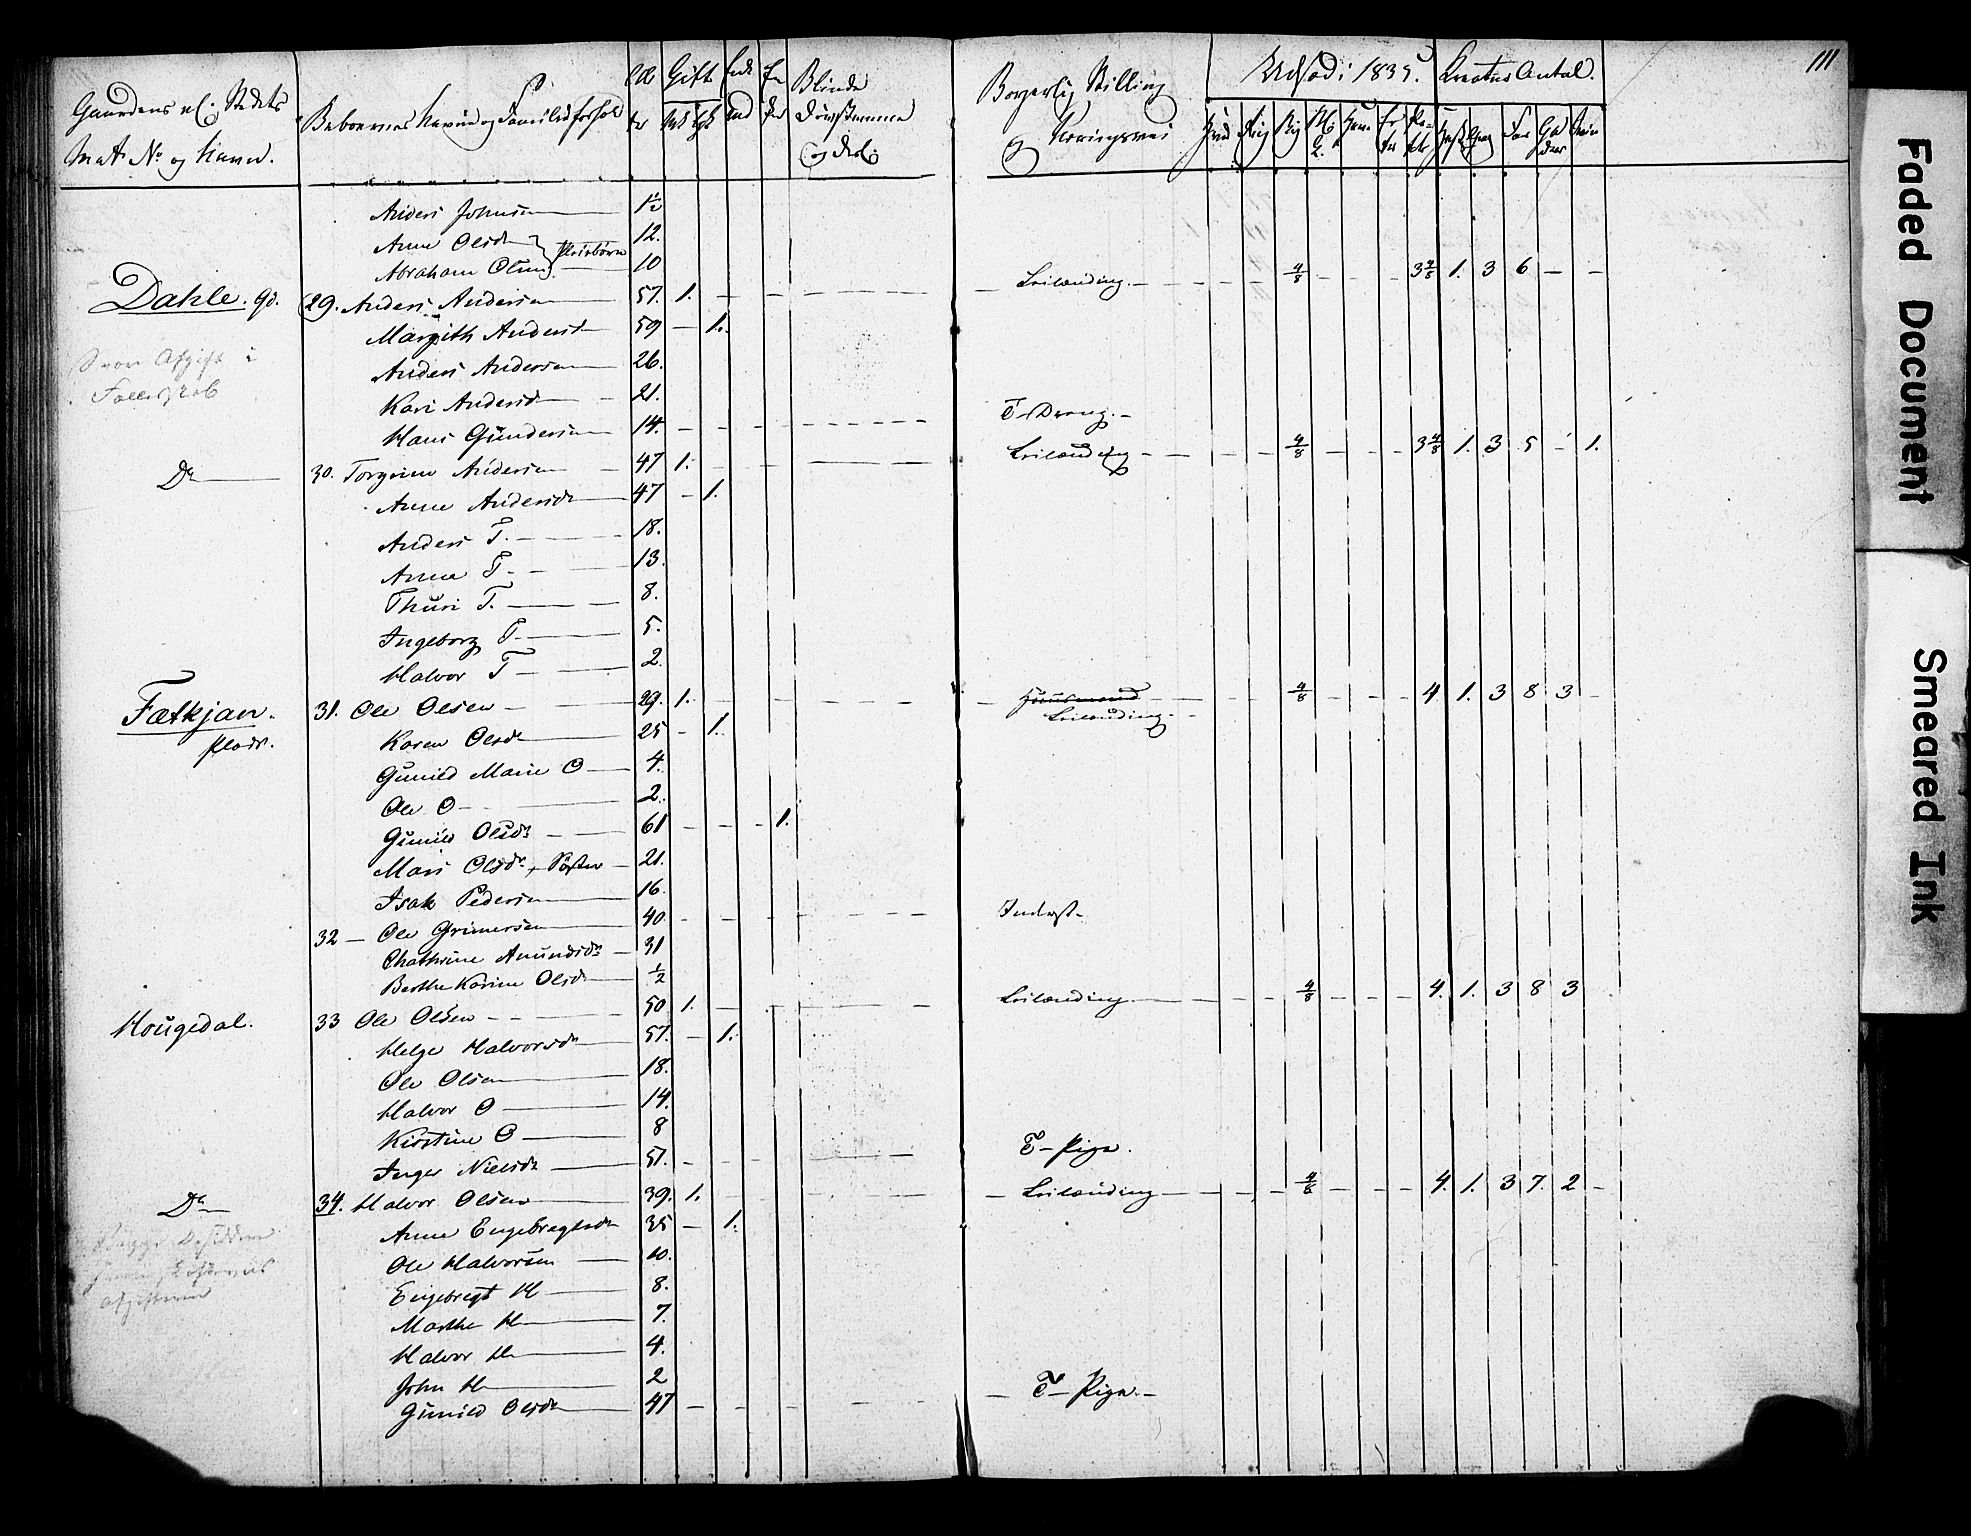 111
Gaardens el. Stedets
Mat. No og Navn.
Beboernes Navne og Familieforhold
Gift
Blinde
Døvstumme
Borgerlig Stilling
og Næringsvei
Udsæd i 1835.
Kreatur Antal.
Anders Johnsen 1½
Anne Olsdr 12.
Pleiebørn
Abraham Olsen 10
Dahle. gd. 29. Anders Andersen 57. 1. Leilænding. 4/8 3 4/8 1. 3 6
Margith Andersd 59 1.
Anders Andersen 26.
Kari Andersd 21.
Hans Gundersen 14. T-Dreng.
Do 30. Torgrim Andersen 47 1. Leilænding 4/8 3 4/8 1. 3 5 1.
Anne Andersdr 47 1.
Anders T. 18.
Anne T. 13.
Thuri T. 8.
Ingeborg T. 5.
Halvor T 2.
Fætkjan. 31. Ole Olsen 29. 1. Huusmand 4/8 4 1. 3 8 3
Leilænding.
plads.
Karen Olsdr 25 1.
Gunild Marie O 4.
Ole O 2.
Gunild Olsdr 61 1.
Mari Olsdr, Søster 21.
Isak Pedersen 16.
32 Ole Grimersen 40 Inderst
Chathrine Amundsdr 31
Berthe Karine Olsdr ½
Hougedal. 33 Ole Olsen 50 1. Leilænding 4/8 4. 1. 3 8 3
Helge Halvorsdr 57. 1.
Ole Olsen 18.
Halvor O 14.
Kirstine O 8
Inger Nielsdr 51. T-Pige.
Do 34. Halvor Olsen 39. 1. Leilænding 4/8 4. 1. 3 7. 2
Anne Engebregtsdr 35 1.
Ole Halvorsen 10.
Engebregt H 8.
Marthe H 7.
Halvor H 4.
John H 2
Gunild Olsdr 47 T-Pige.
Faded Document
Smeared Ink